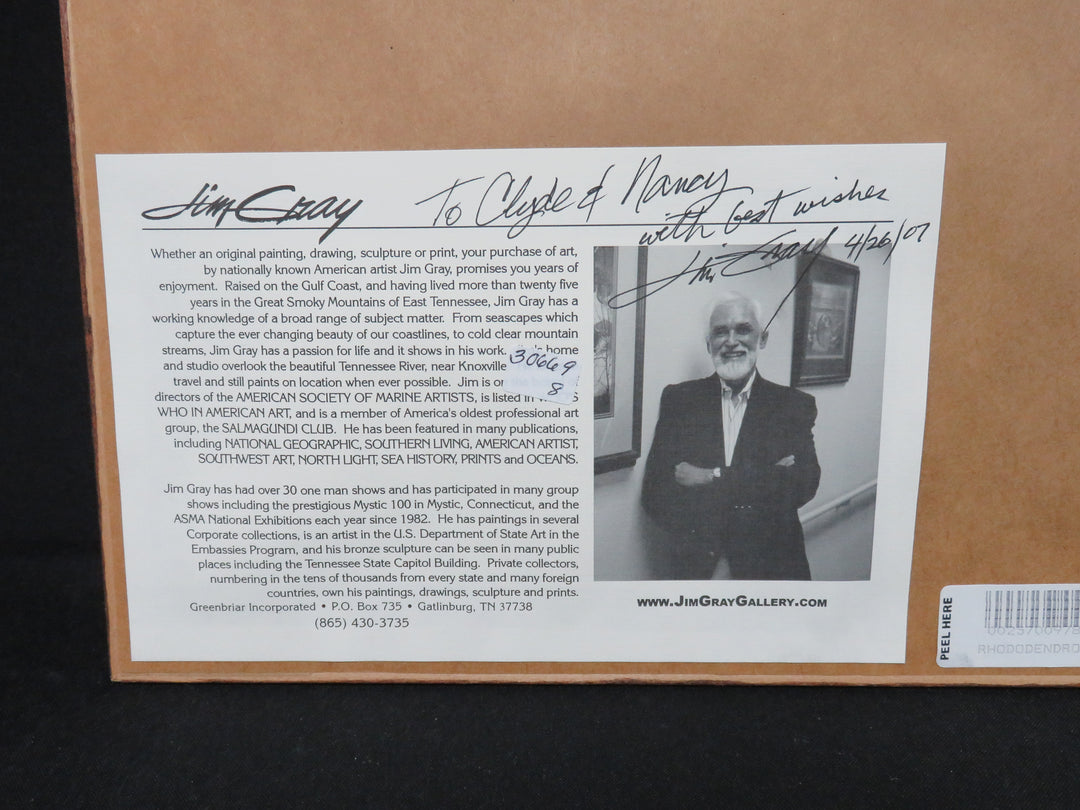 Jim Gray
To Clyde & Nancy
with best wishes
Jim Gray 4/26/07
Whether an original painting, drawing, sculpture or print, your purchase of art,
by nationally known American artist Jim Gray, promises you years of
enjoyment. Raised on the Gulf Coast, and having lived more than twenty five
years in the Great Smoky Mountains of East Tennessee, Jim Gray has a
working knowledge of a broad range of subject matter. From seascapes which
capture the ever changing beauty of our coastlines, to cold clear mountain
streams, Jim Gray has a passion for life and it shows in his work. home
and studio overlook the beautiful Tennessee River, near Knoxville
travel and still paints on location when ever possible. Jim is
directors of the AMERICAN SOCIETY OF MARINE ARTISTS, is listed in
WHO IN AMERICAN ART, and is a member of America's oldest professional art
group, the SALMAGUNDI CLUB. He has been featured in many publications,
including NATIONAL GEOGRAPHIC, SOUTHERN LIVING, AMERICAN ARTIST,
SOUTHWEST ART, NORTH LIGHT, SEA HISTORY, PRINTS and OCEANS.
30669
8
Jim Gray has had over 30 one man shows and has participated in many group
shows including the prestigious Mystic 100 in Mystic, Connecticut, and the
ASMA National Exhibitions each year since 1982. He has paintings in several
Corporate collections, is an artist in the U.S. Department of State Art in the
Embassies Program, and his bronze sculpture can be seen in many public
places including the Tennessee State Capitol Building. Private collectors,
numbering in the tens of thousands from every state and many foreign
countries, own his paintings, drawings, sculpture and prints.
Greenbriar Incorporated • P.O. Box 735 • Gatlinburg, TN 37738
(865) 430-3735
WWW.JIMGRAYGALLERY.COM
PEEL HERE
RHODODENDRO